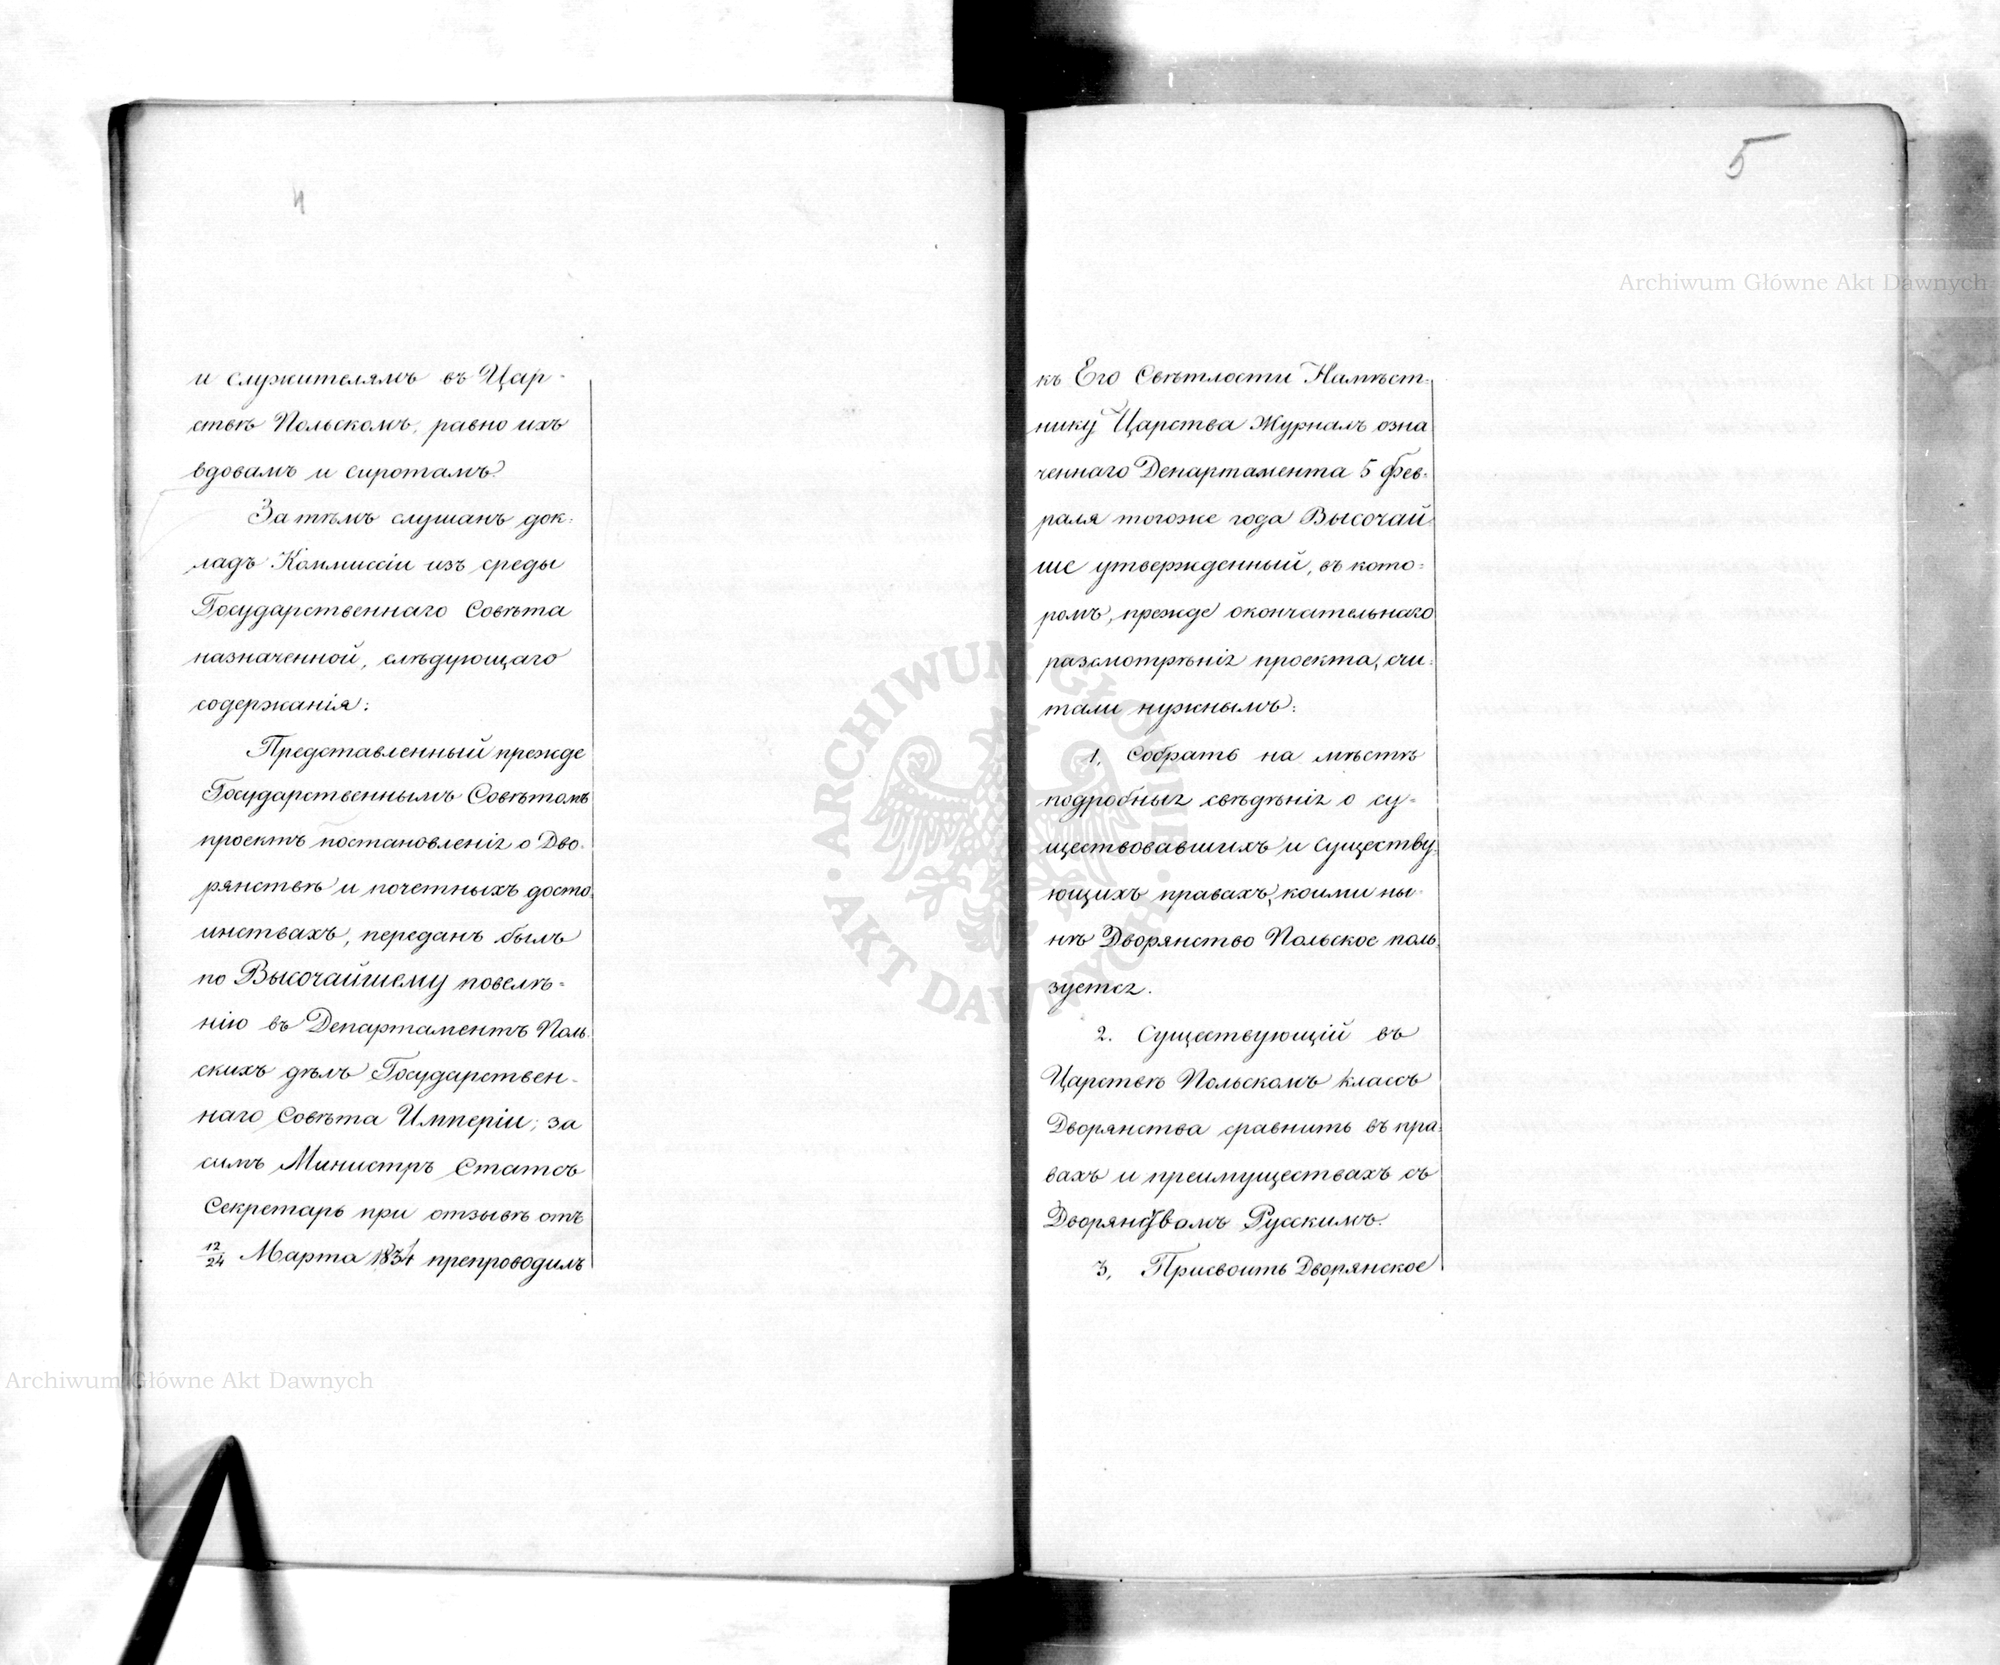 4
и служителямъ въ Цар-
ствѣ Польскомъ, равно ихъ
вдовамъ и сиротамъ.
За тѣмъ слушанъ док-
ладъ Коммиссіи изъ среды
Государственнаго Совѣта
назначенной, слѣдующаго
содержанія:
Представленный прежде
Государственнымъ Совѣтомъ
проектъ постановленія о Дво-
рянствѣ и почетныхъ досто-
инствахъ, переданъ былъ
по Высочайшему повелѣ-
нію въ Департаментъ Поль-
скихъ дѣлъ Государствен-
наго Совѣта Имперіи; за
симъ Министръ Статсъ
Секретарь при отзывѣ отъ
12/24 Марта 1834 препроводилъ
5
къ Его Свѣтлости Намѣст-
нику Царства Журналъ озна
ченнаго Департамента 5 Фев-
раля тогоже года Высочай
ше утвержденный, въ кото-
ромъ, прежде окончательнаго
разсмотрѣнія проекта, счи-
тали нужнымъ:
1. Собрать на мѣстѣ
подробныя свѣдѣнія о су-
ществовавшихъ и существу-
ющихъ правахъ, коими ны-
нѣ Дворянство Польское поль-
зуется.
2. Существующій въ
Царствѣ Польскомъ классъ
Дворянства сравнить въ пра-
вахъ и преимуществахъ съ
Дворянствомъ Русскимъ.
3. Присвоить Дворянское
Archiwum Główne Akt Dawnych
Archiwum Główne Akt Dawnych
ARCHIWUM GŁÓWNE
AKT DAWNYCH